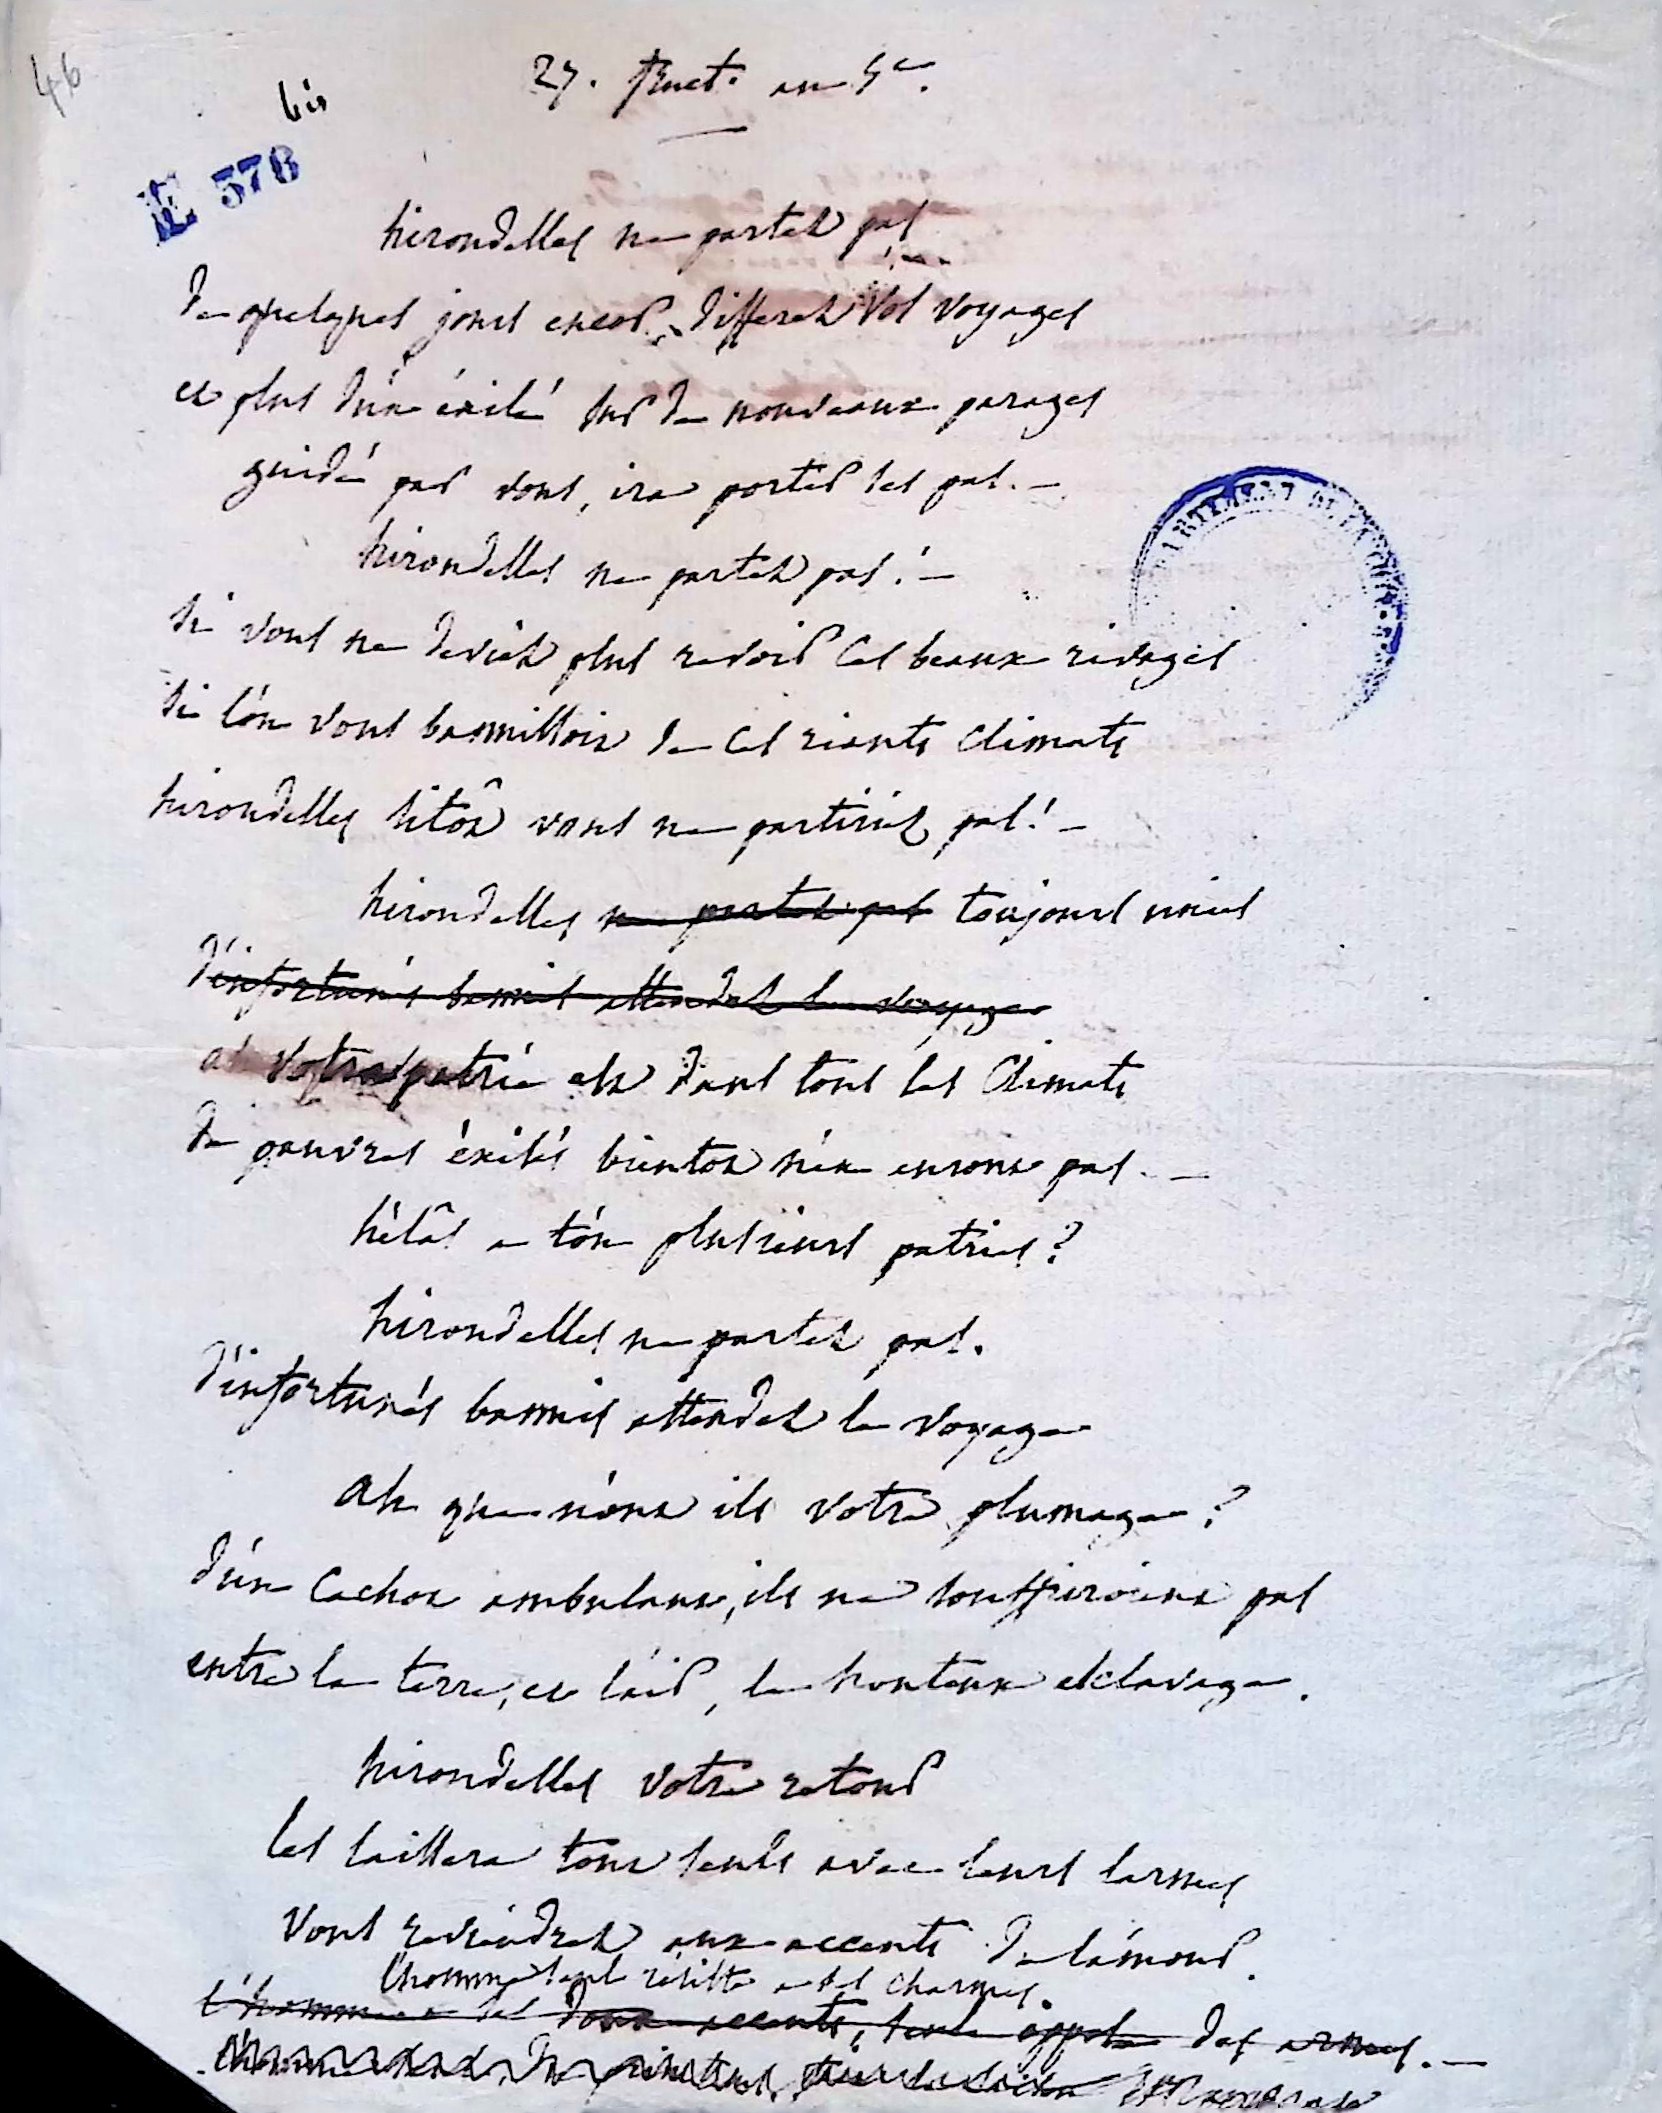 46
bis
27. fruct. an 5e.
E 576
hirondelles ne partez pas
de quelques jours encor, differez vos voyages
et plus d'un éxilé sur de nouveaux parages
guidé par vous, ira porter ses pas. —
hirondelles ne partez pas! —
si vous ne deviez plus revoir ces beaux rivages
si l'on vous bannissoit de ces riants climats
hirondelles sitôt vous ne partiriez pas! —
hirondelles ne partez pas toujours unies
d'infortunés bannis attendez le voyage
ah votre patrie est dans tous les climats
de pauvres éxilés bientot n'en auront pas. —
hélâs a t'on plusieurs patries?
hirondelles ne partez pas.
d'infortunés bannis attendez le voyage
ah que n'ont ils votre plumage?
d'un cachot ambulant, ils ne souffriroient pas
entre la terre, et l'air, le honteux esclavage.
hirondelles votre retour
les laissera tous seuls avec leurs larmes
vous reviendrez aux accents de l'amour.
l'homme seul résiste a ses charmes.
l'homme a ses doux accents, seul oppose des armes. —
du printems